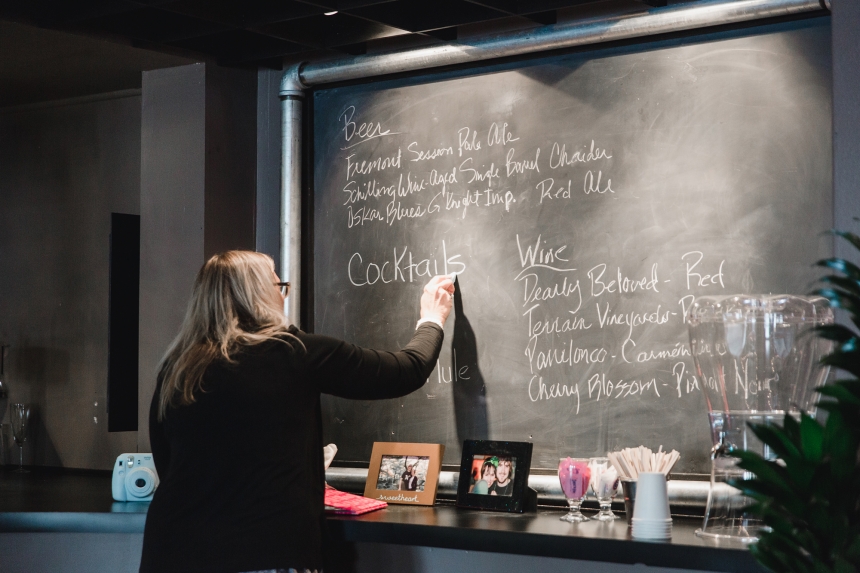 Beer
Fremont Session Pale Ale
Schilling Wine-Aged Single Barrel Chaider
Oskar Blues G'Knight Imp. Red Ale
Cocktails
Mule
Wine
Dearly Beloved - Red
Terrain Vineyards -
Panilonco - Carménère
Cherry Blossom - Pinot Noir
sweetheart